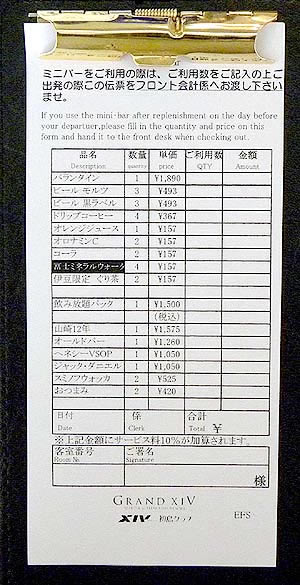 ミニバーをご利用の際は、ご利用数をご記入の上ご
出発の際この伝票をフロント会計係へお渡し下さい
ませ。
If you use the mini-bar after replenishment on the day before
your departuer,please fill in the quantity and price on this
form and hand it to the front desk when checking out.
品名 数量 単価 ご利用数 金額
Description price QTY Amount
バランタイン 1 ¥1,890
ビール モルツ 3 ¥493
ビール 黒ラベル 3 ¥493
ドリップコーヒー 4 ¥367
オレンジジュース 1 ¥157
オロナミンC 2 ¥157
コーラ 2 ¥157
富士ミネラルウォータ 4 ¥157
伊豆限定 ぐり茶 2 ¥157
飲み放題パック 1 ¥1,500
(税込)
山崎12年 1 ¥1,575
オールドパー 1 ¥1,260
ヘネシーVSOP 1 ¥1,050
ジャック・ダニエル 1 ¥1,050
スミノフウォッカ 2 ¥525
おつまみ 2 ¥420
日付 係 合計
Date Clerk Total ¥
※上記金額にサービス料10%が加算されます。
客室番号 ご署名
Room No. Signature
様
GRAND XIV
XIV 初島クラブ EFS-